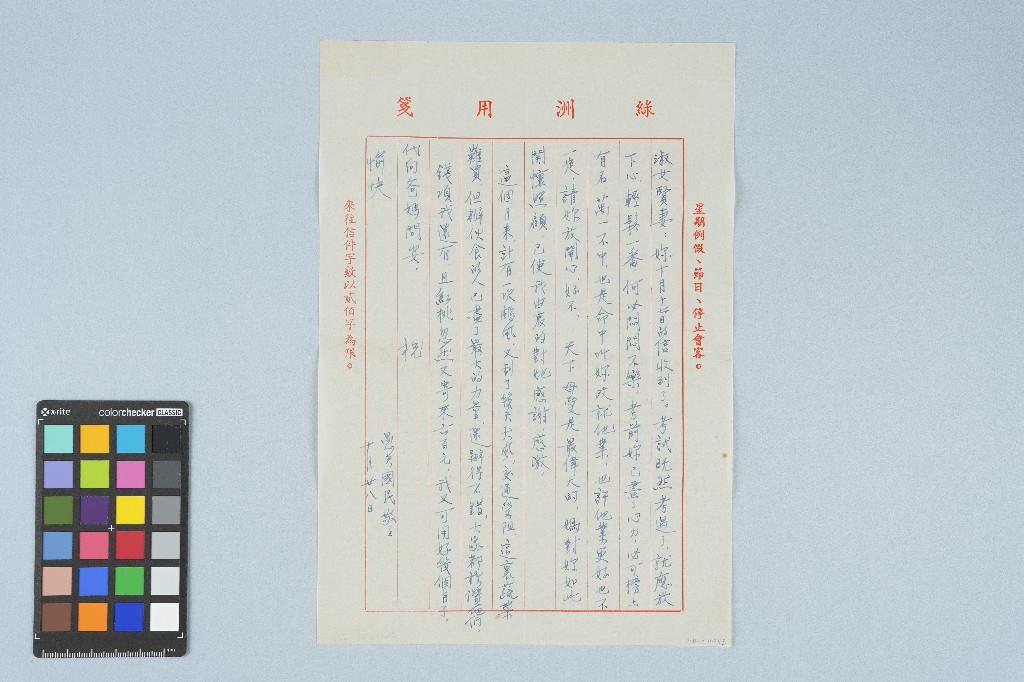 綠洲用箋
星期例假、節日、停止會客。
淑女賢妻：妳十月十七日的信收到了。考試既然考過了，就應放
下心，輕鬆一番，何必悶悶不樂，考前妳已盡了心力，必可榜上
有名，萬一不中，也是命中叫妳改試他業，也許他業更好也不
一定，請妳放開心，好不。天下母愛是最偉大的，媽對妳如此
關懷照顧，已使我由衷的對她感謝，感激。
這個月來，計有一次颱風，又刮了幾天大風，交通受阻，這裏蔬菜
難買，但辦伙食的人已盡了最大的力量，還辦得不錯，大家都讚
錢項我還有，且紅桃忽然又寄來六百元，我又可用好幾個月了。
代向爸媽問安。祝
愉快
愚夫國民敬上
十月廿八日
來往信件字數以貳佰字為限。